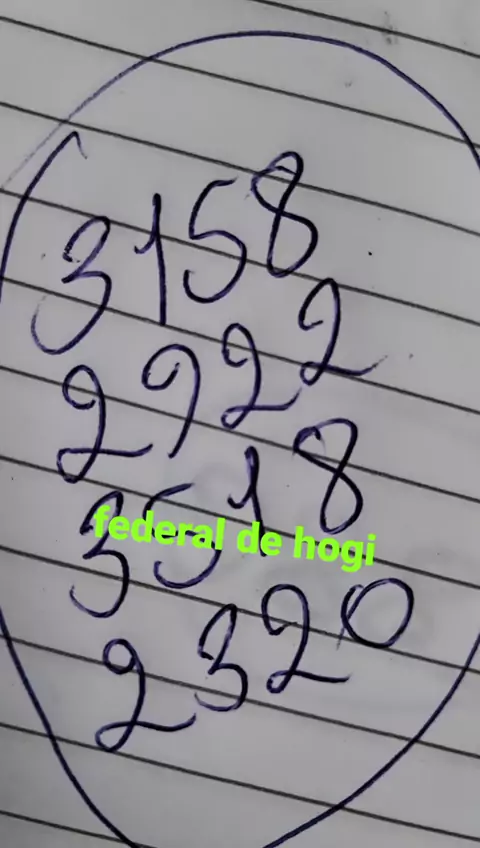 3158
2922
3518
federal de hogi
2320